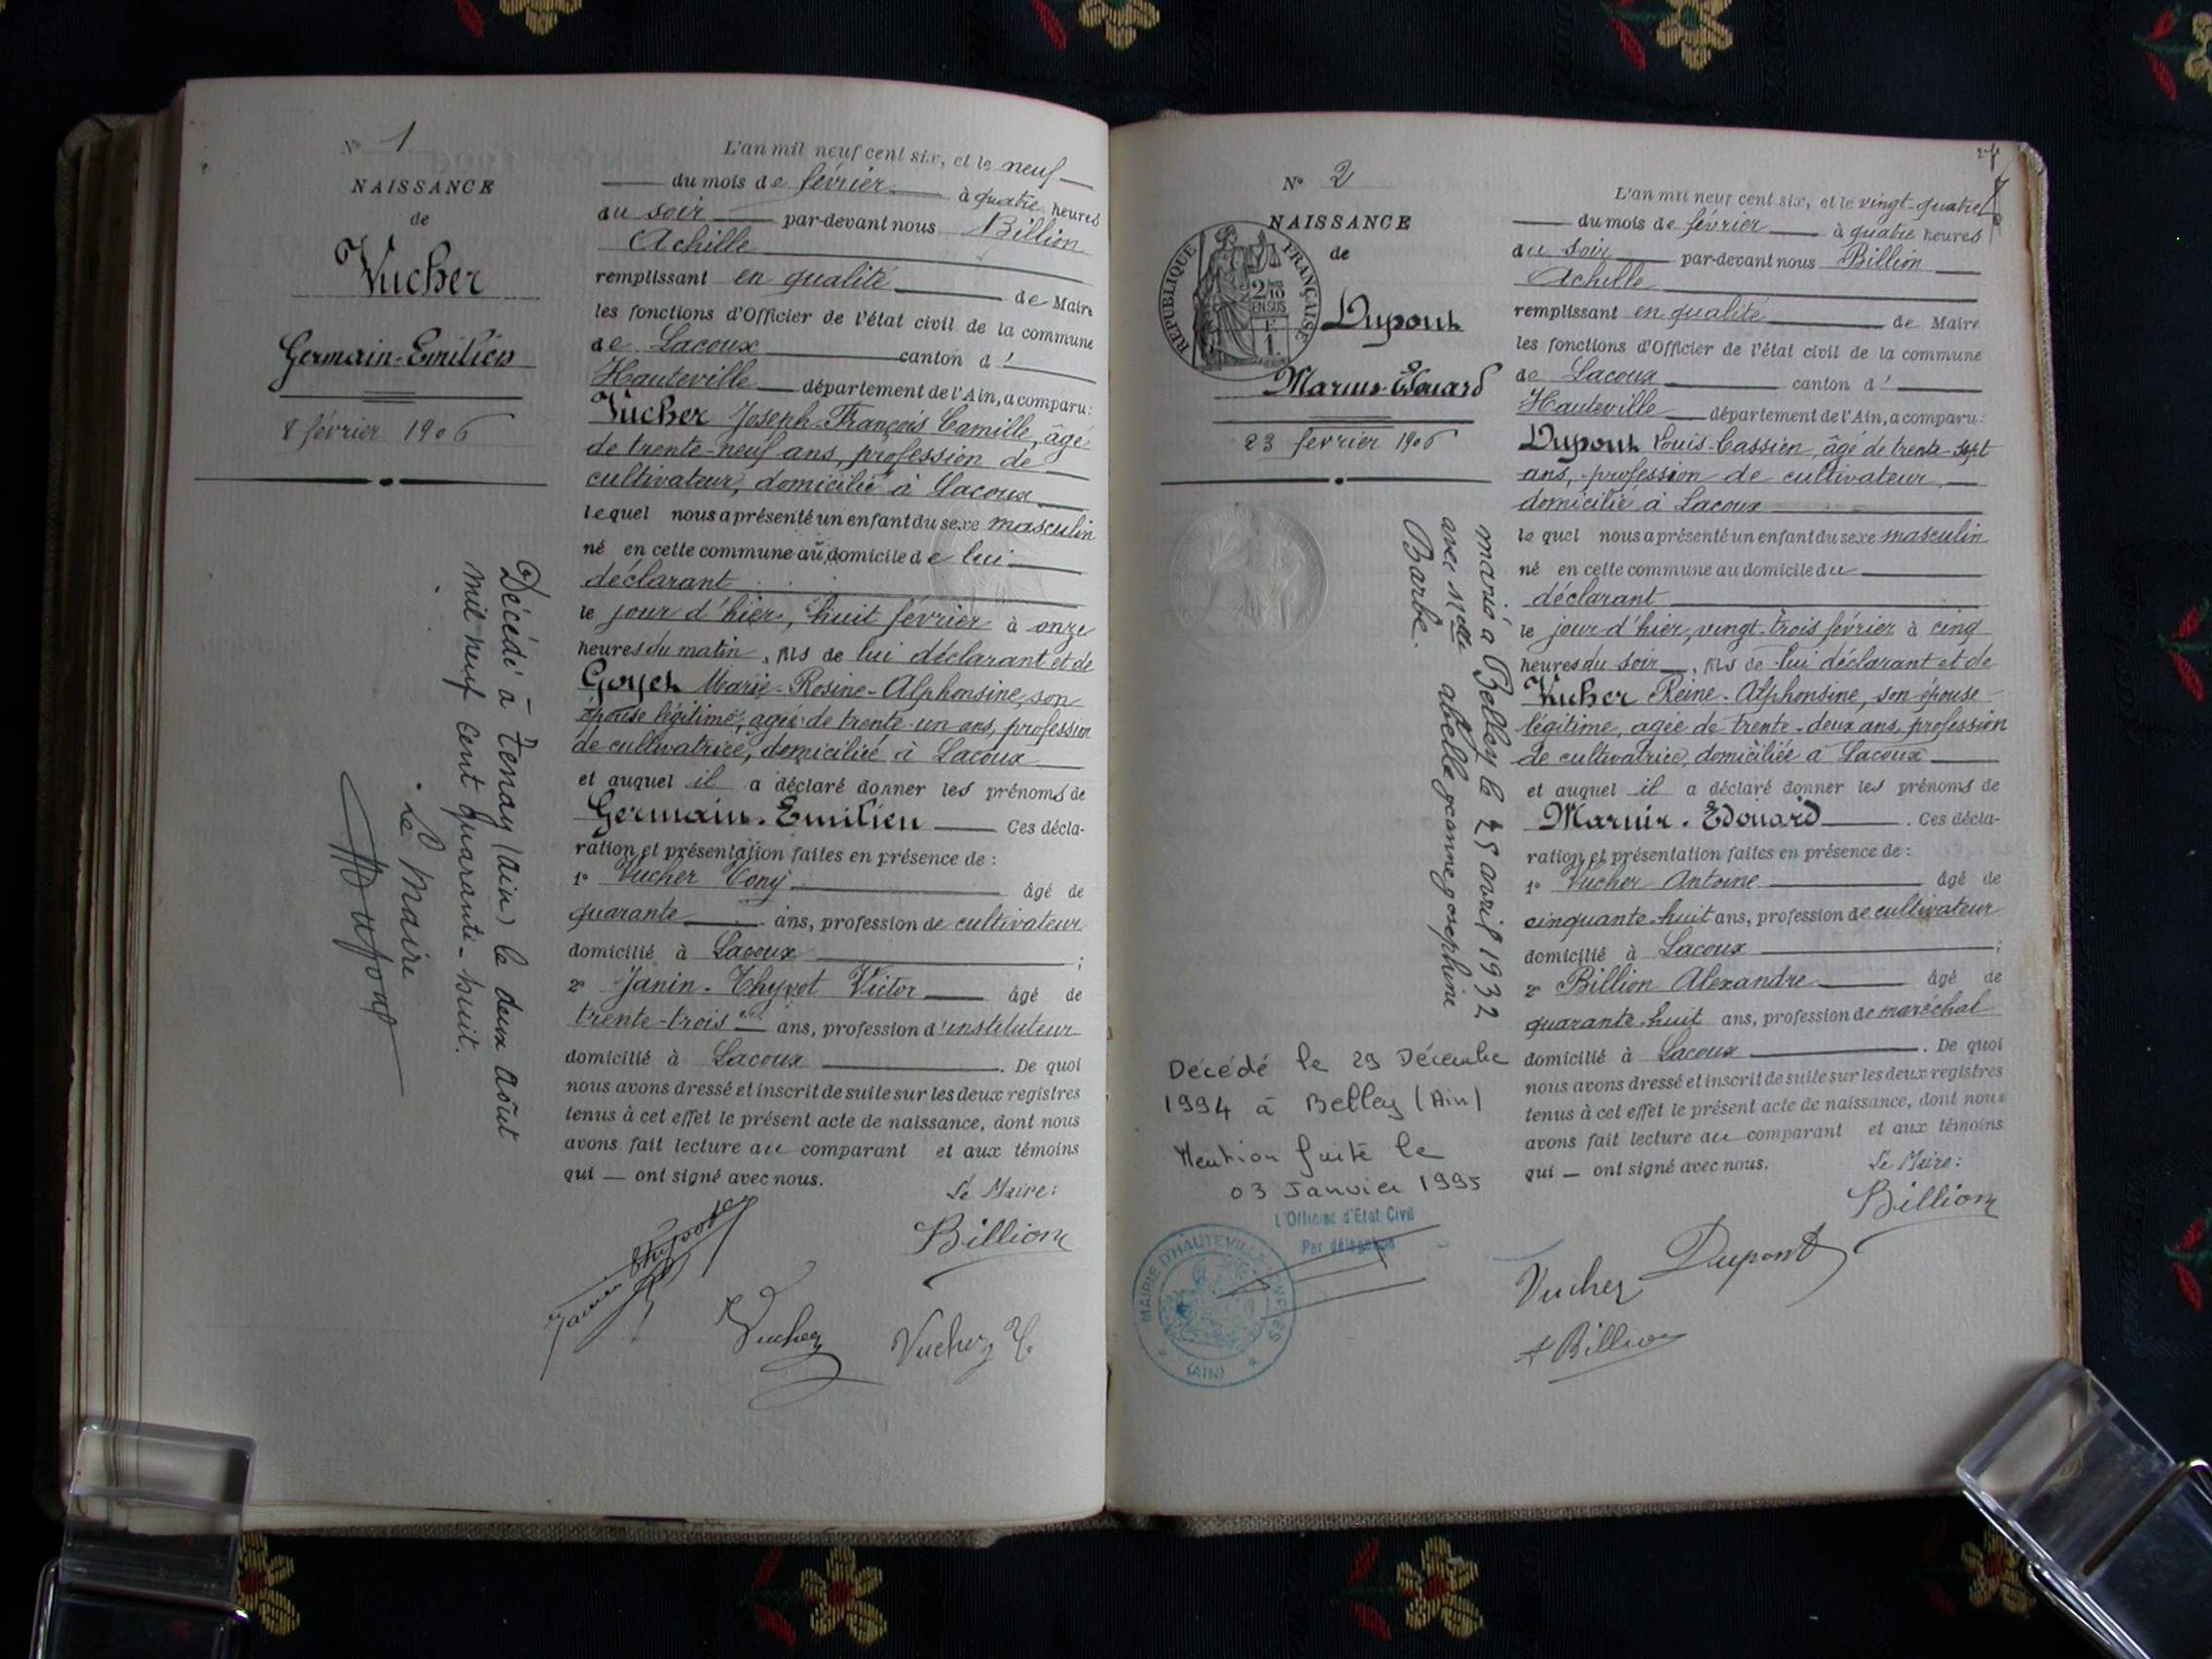 N° 1
NAISSANCE
de
Vucher
Germain-Emilien
8 février 1906
Décédé à Tenay (Ain) le deux août
mil neuf cent quarante-huit.
Le Maire
L'an mil neuf cent six, et le neuf
du mois de février à quatre heures
du soir par-devant nous Billion
Achille
remplissant en qualité de Maire
les fonctions d'Officier de l'état civil de la commune
de Lacoux canton d'
Hauteville département de l'Ain, a comparu:
Vucher Joseph-François Camille, âgé
de trente-neuf ans, profession de
cultivateur, domicilié à Lacoux
lequel nous a présenté un enfant du sexe masculin
né en cette commune au domicile de lui
déclarant
le jour d'hier, huit février à onze
heures du matin, fils de lui déclarant et de
Goyet Marie-Rosine-Alphonsine, son
épouse légitime, agée de trente-un ans, profession
de cultivatrice, domiciliée à Lacoux
et auquel il a déclaré donner les prénoms de
Germain-Emilien Ces décla-
ration et présentation faites en présence de :
1° Vucher Tony âgé de
quarante ans, profession de cultivateur
domicilié à Lacoux ;
2° Janin-Thyvot Victor âgé de
trente-trois ans, profession d'instituteur
domicilié à Lacoux. De quoi
nous avons dressé et inscrit de suite sur les deux registres
tenus à cet effet le présent acte de naissance, dont nous
avons fait lecture au comparant et aux témoins
qui — ont signé avec nous.
Le Maire:
Billion
Janin Thyvot
Vucher
Vucher T
N° 2
NAISSANCE
de
RÉPUBLIQUE FRANÇAISE
2/10
EN SUS
Dupont
Marius-Edouard
23 février 1906
marié à Belley le 25 avril 1932
avec Melle abelle jeanne josephine
Barbe.
Décédé le 29 Décembre
1994 à Belley (Ain)
Mention faite le
03 Janvier 1995
L'Officier d'Etat Civil
Par délégation
MAIRIE D'HAUTEVILLE-LOMPNES
(AIN)
L'an mil neuf cent six, et le vingt-quatre
du mois de février à quatre heures
du soir par-devant nous Billion
Achille
remplissant en qualité de Maire
les fonctions d'Officier de l'état civil de la commune
de Lacoux canton d'
Hauteville département de l'Ain, a comparu:
Dupont Louis-Cassien, âgé de trente-sept
ans, profession de cultivateur,
domicilié à Lacoux
lequel nous a présenté un enfant du sexe masculin
né en cette commune au domicile du
déclarant
le jour d'hier, vingt-trois février à cinq
heures du soir, fils de lui déclarant et de
Vucher Reine-Alphonsine, son épouse
légitime, agée de trente-deux ans, profession
de cultivatrice, domiciliée à Lacoux
et auquel il a déclaré donner les prénoms de
Marius-Edouard. Ces décla-
ration et présentation faites en présence de :
1° Vucher Antoine âgé de
cinquante-huit ans, profession de cultivateur
domicilié à Lacoux ;
2° Billion Alexandre âgé de
quarante-huit ans, profession de maréchal
domicilié à Lacoux. De quoi
nous avons dressé et inscrit de suite sur les deux registres
tenus à cet effet le présent acte de naissance, dont nous
avons fait lecture au comparant et aux témoins
qui — ont signé avec nous.
Le Maire:
Billion
Vucher Dupont
A Billion